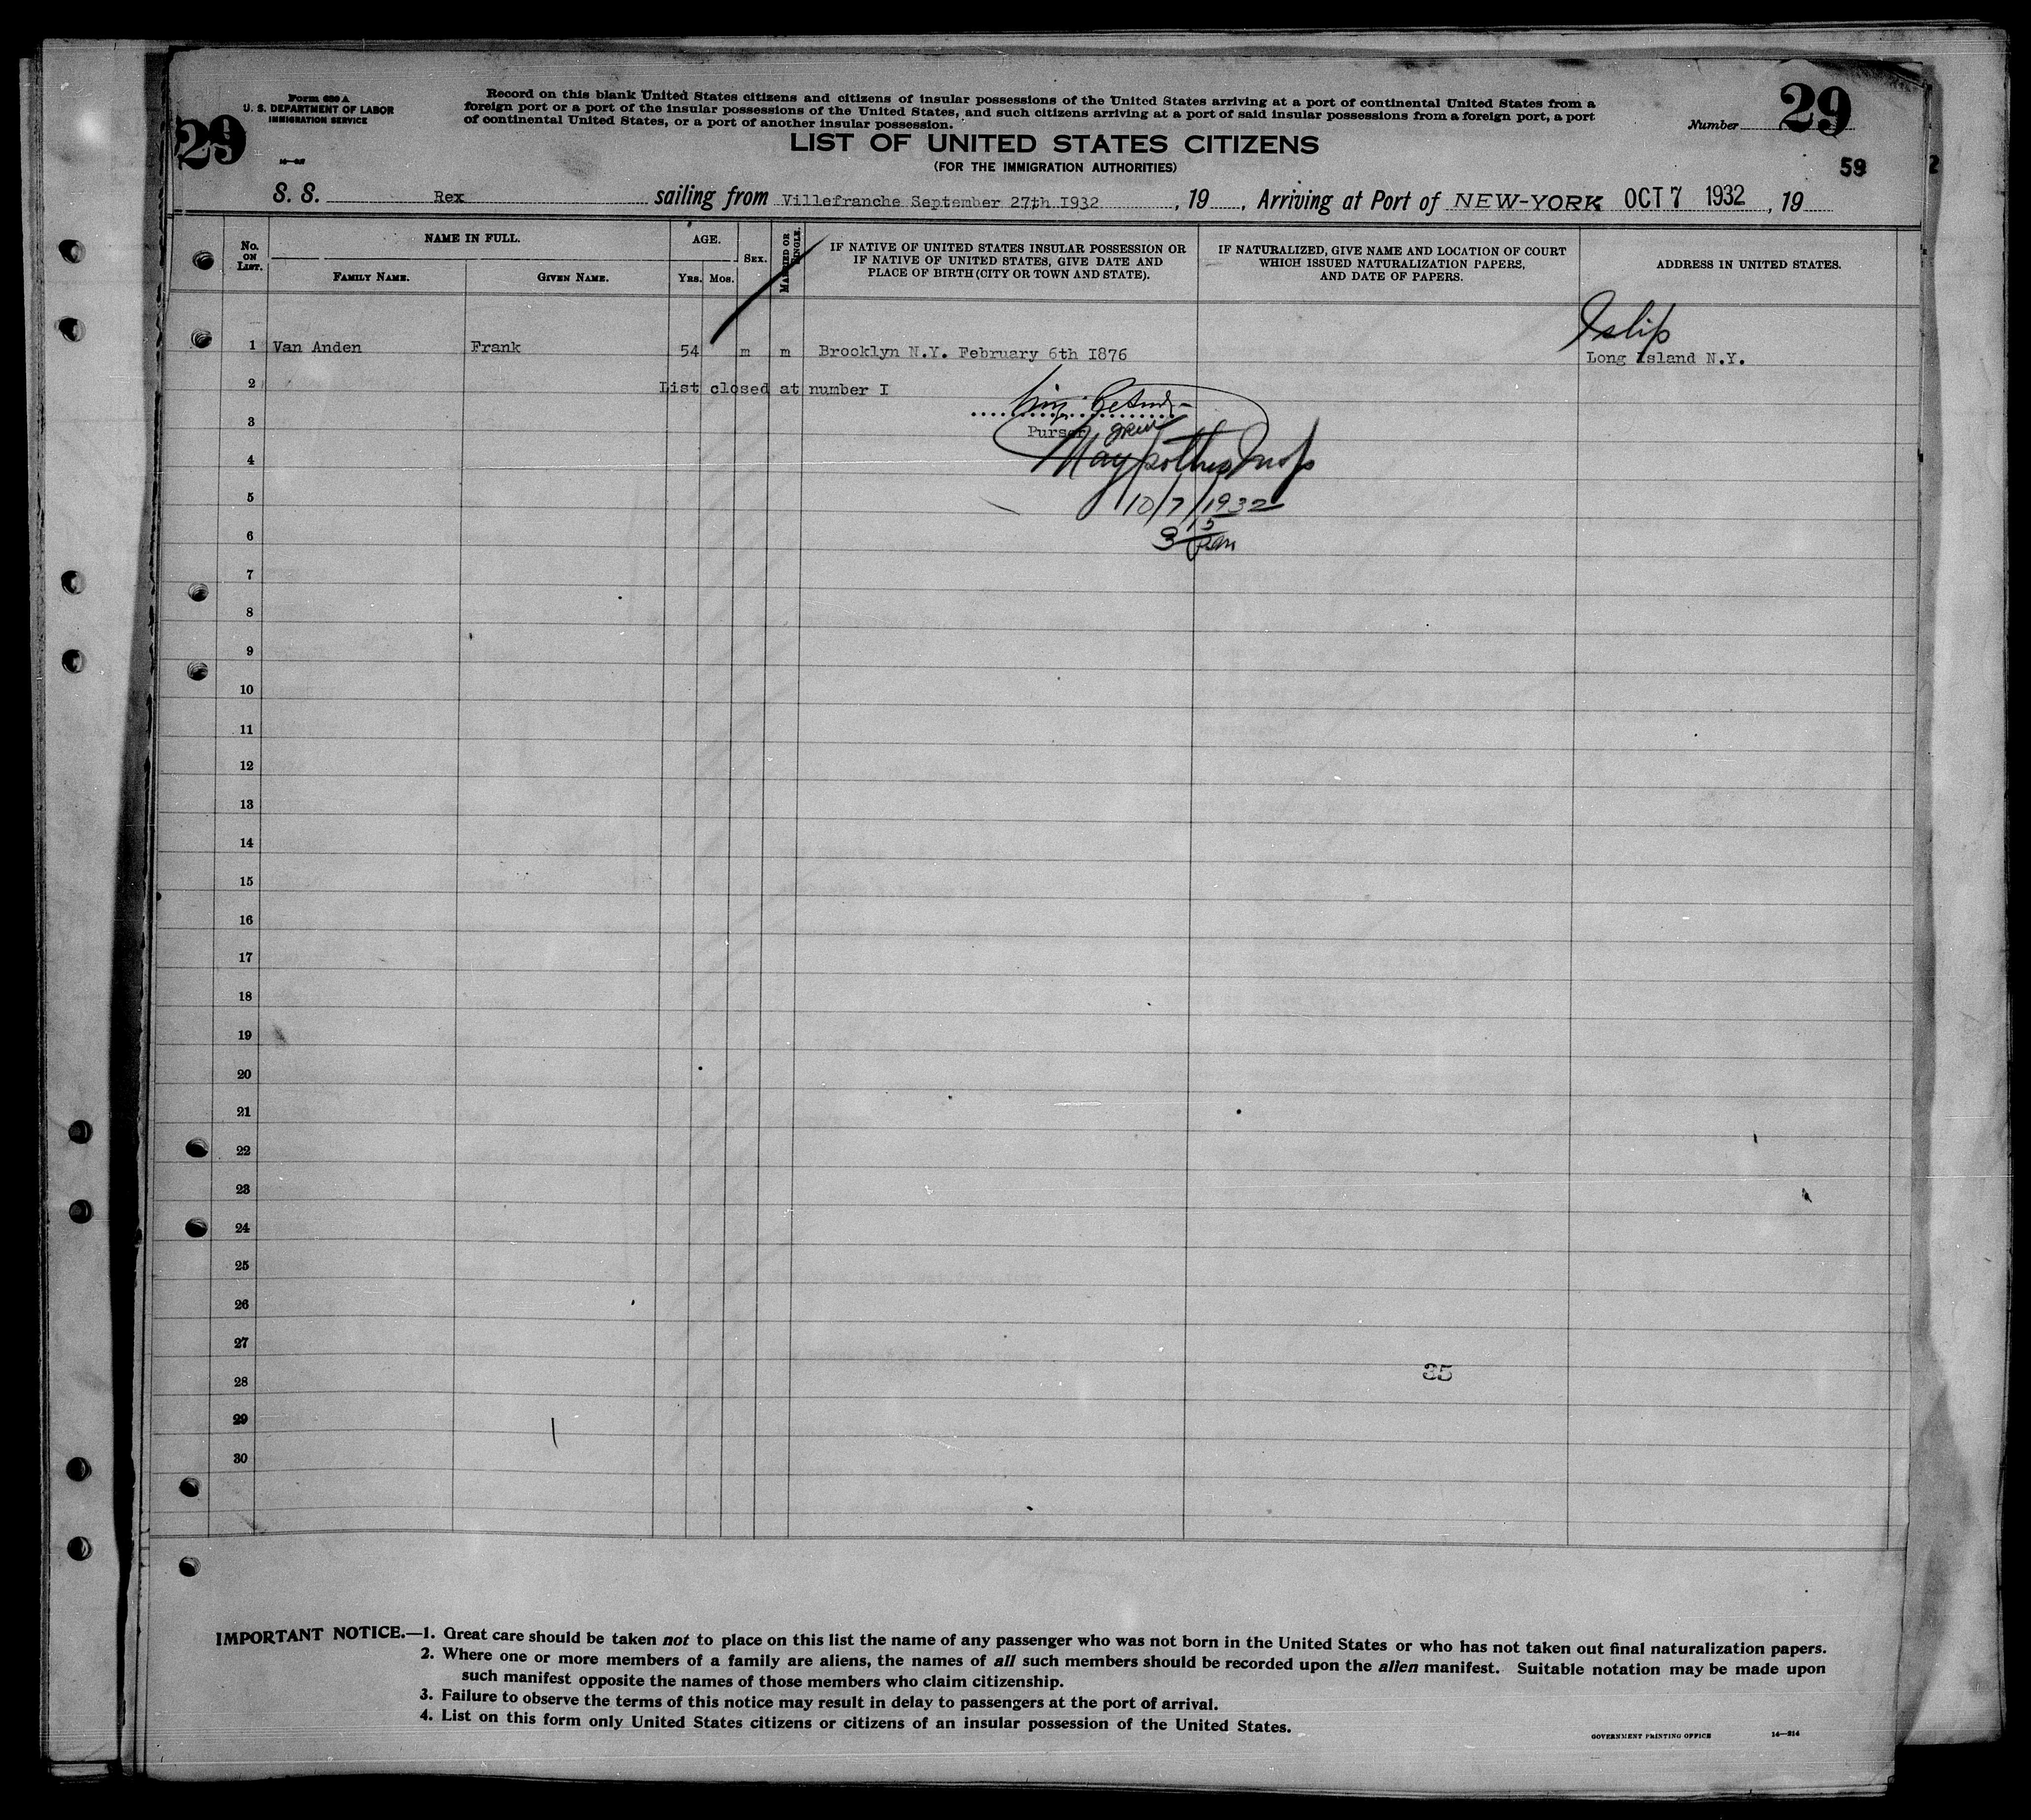 Form 630 A
U. S. DEPARTMENT OF LABOR
IMMIGRATION SERVICE
29
Record on this blank United States citizens and citizens of insular possessions of the United States arriving at a port of continental United States from a
foreign port or a port of the insular possessions of the United States, and such citizens arriving at a port of said insular possessions from a foreign port, a port
of continental United States, or a port of another insular possession.
Number 29
LIST OF UNITED STATES CITIZENS
(FOR THE IMMIGRATION AUTHORITIES)
59
S. S. Rex sailing from Villefranche September 27th I932, 19 , Arriving at Port of NEW-YORK OCT 7 1932, 19
No. ON LIST.
NAME IN FULL.
FAMILY NAME.
GIVEN NAME.
AGE.
YRS. MOS.
SEX.
MARRIED OR SINGLE.
IF NATIVE OF UNITED STATES INSULAR POSSESSION OR
IF NATIVE OF UNITED STATES, GIVE DATE AND
PLACE OF BIRTH (CITY OR TOWN AND STATE).
IF NATURALIZED, GIVE NAME AND LOCATION OF COURT
WHICH ISSUED NATURALIZATION PAPERS,
AND DATE OF PAPERS.
ADDRESS IN UNITED STATES.
Islip
1 Van Anden Frank 54 m m Brooklyn N.Y. February 6th I876 Long Island N.Y.
2 List closed at number I
3 Purser
4
5 10/7/1932
6 3 15 pm
7
8
9
10
11
12
13
14
15
16
17
18
19
20
21
22
23
24
25
26
27
35
28
29
30
IMPORTANT NOTICE.—1. Great care should be taken not to place on this list the name of any passenger who was not born in the United States or who has not taken out final naturalization papers.
2. Where one or more members of a family are aliens, the names of all such members should be recorded upon the alien manifest. Suitable notation may be made upon
such manifest opposite the names of those members who claim citizenship.
3. Failure to observe the terms of this notice may result in delay to passengers at the port of arrival.
4. List on this form only United States citizens or citizens of an insular possession of the United States.
GOVERNMENT PRINTING OFFICE 14—514